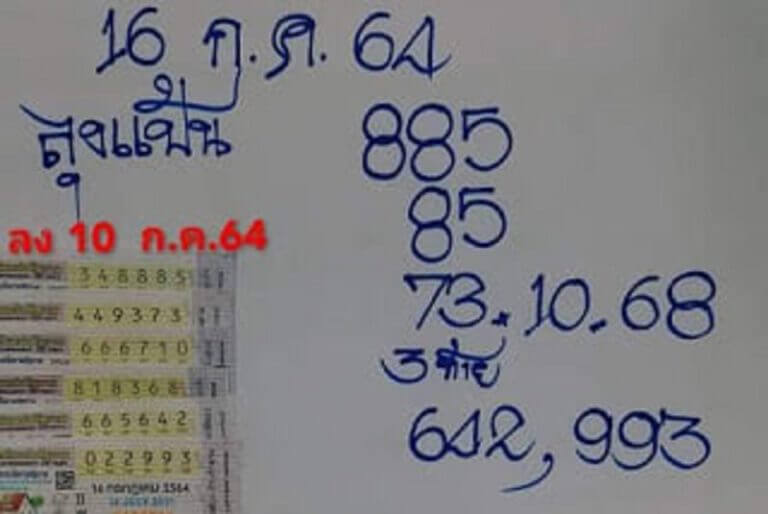 16 ก.ค. 64
ลุงแป้น
885
85
ลง 10 ก.ค.64
73.10.68
3 ท้าย
642, 993
348885
449373
666710
818368
665642
022993
16 กรกฎาคม 2564